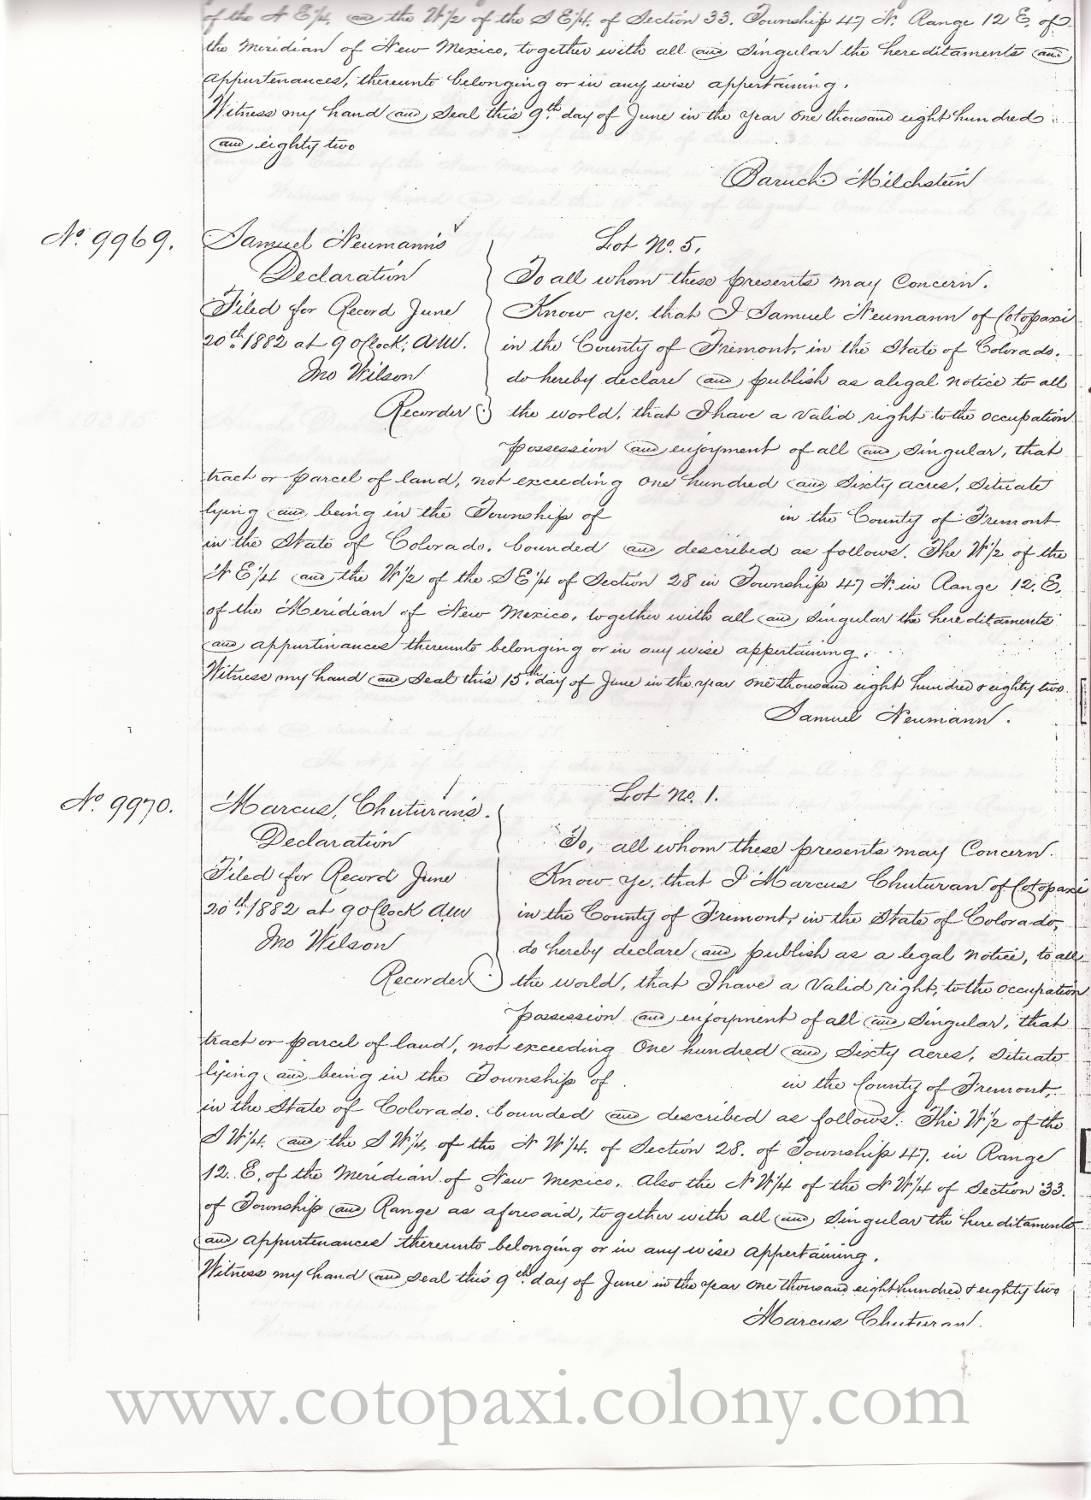 of the N E¼, and the W½ of the S E¼ of Section 33. Township 47 N. Range 12 E. of
the Meridian of New Mexico, together with all and singular the hereditaments and
appurtenances, thereunto belonging or in any wise appertaining.
Witness my hand and seal this 9th day of June in the year one thousand eight hundred
and eighty two
Baruch Milchstein
No. 9969.
Samuel Neumann's
Declaration
Filed for Record June
20th 1882 at 9 oClock, A.M.
Jno Wilson
Recorder
Lot No. 5.
To all whom these presents may Concern.
Know ye, that I Samuel Neumann of Cotopaxi
in the County of Fremont, in the State of Colorado.
do hereby declare and publish as a legal notice to all
the world, that I have a valid right to the occupation
possession and enjoyment of all and singular, that
tract or parcel of land, not exceeding one hundred and sixty acres, situate
lying and being in the Township of in the County of Fremont
in the State of Colorado. bounded and described as follows. The W½ of the
N E¼ and the W½ of the S E¼ of Section 28 in Township 47 N. in Range 12. E.
of the Meridian of New Mexico, together with all and singular the hereditaments
and appurtinances thereunto belonging or in any wise appertaining.
Witness my hand and seal this 15th day of June in the year one thousand eight hundred & eighty two
Samuel Neumann.
No. 9970.
Marcus, Chuturan's.
Declaration
Filed for Record June
20th 1882 at 9 oClock A.M
Jno Wilson
Recorder
Lot No. 1.
To, all whom these presents may Concern.
Know ye, that I Marcus Chuturan of Cotopaxi
in the County of Fremont, in the State of Colorado,
do hereby declare and publish as a legal notice, to all
the world, that I have a valid right, to the occupation
possession and enjoyment of all and singular, that
tract or parcel of land, not exceeding one hundred and sixty acres, situate
lying and being in the Township of in the County of Fremont,
in the State of Colorado. bounded and described as follows: The W½ of the
S W¼, and the S W¼, of the N W¼, of Section 28. of Township 47. in Range
12. E. of the Meridian of New Mexico. Also the N W¼ of the N W¼ of Section 33.
of Township and Range as aforesaid, together with all and singular the hereditaments
and appurtinances thereunto belonging or in any wise appertaining.
Witness my hand and seal this 9th day of June in the year one thousand eight hundred & eighty two
Marcus Chuturan.
www.cotopaxi.colony.com